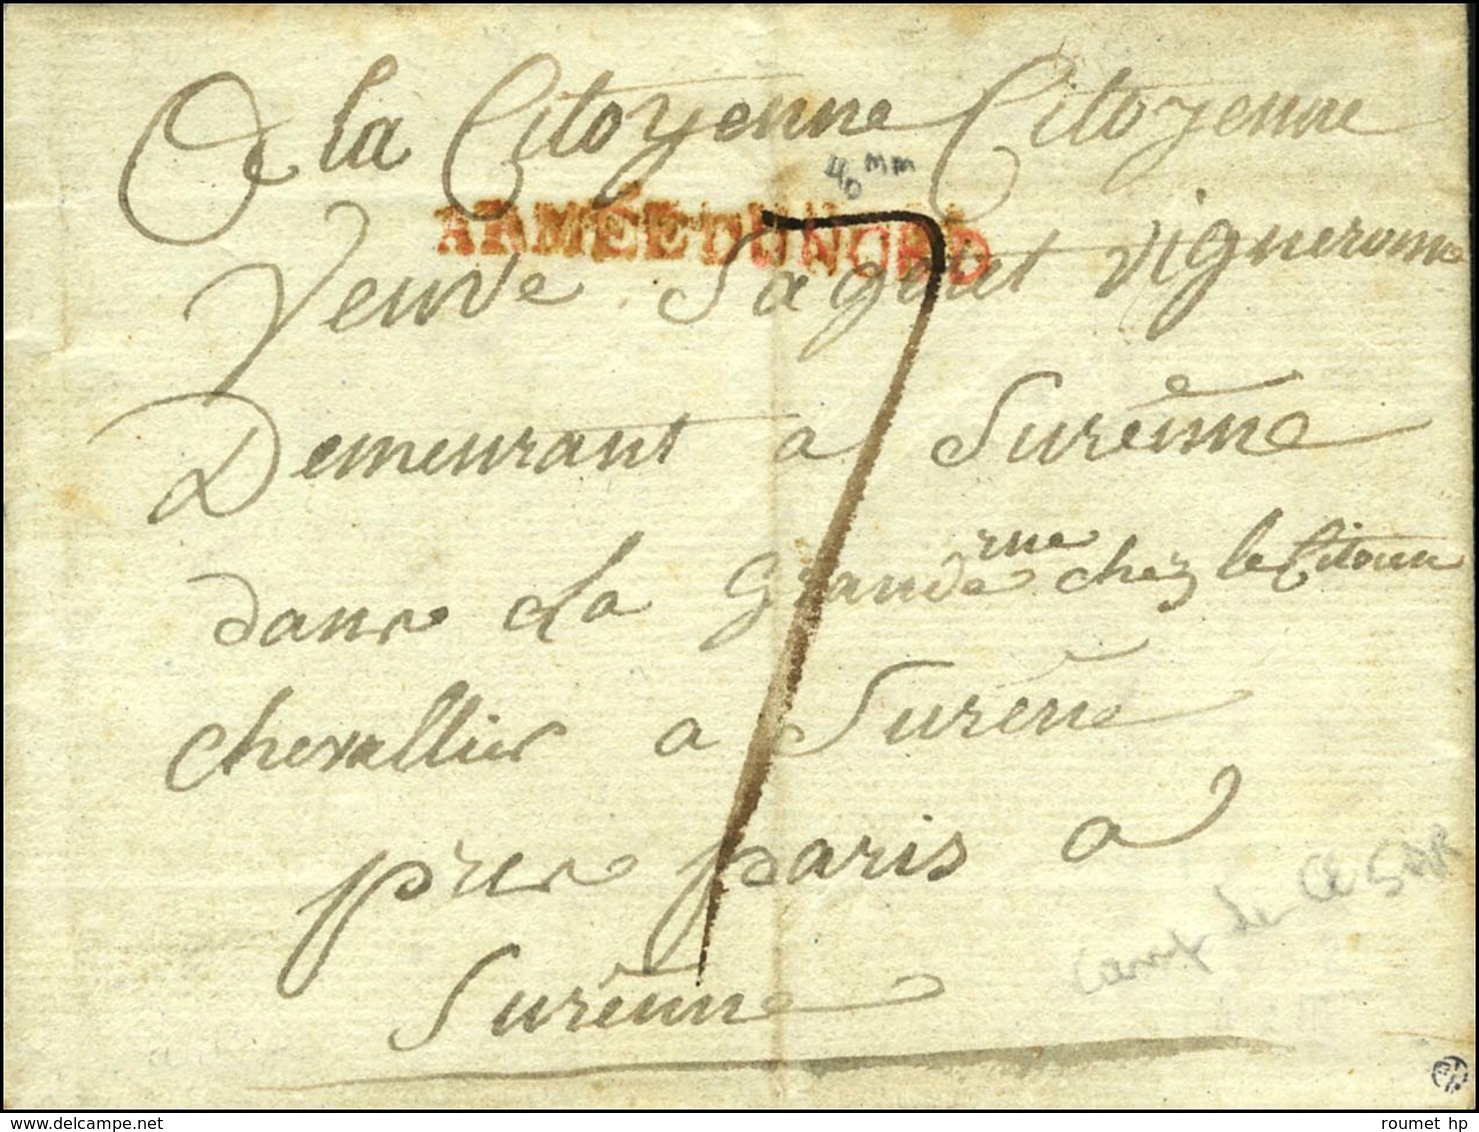 A la Citoyenne Citoyenne
40 mm
ARMÉE DU NORD
Veuve Sagout Vigneronne
7
Demeurant a Surênne
dans la Grande rue chez le Citoien
chevallier a Surêne
pres paris a
Surênne
Camp de CESAR
roumet hp